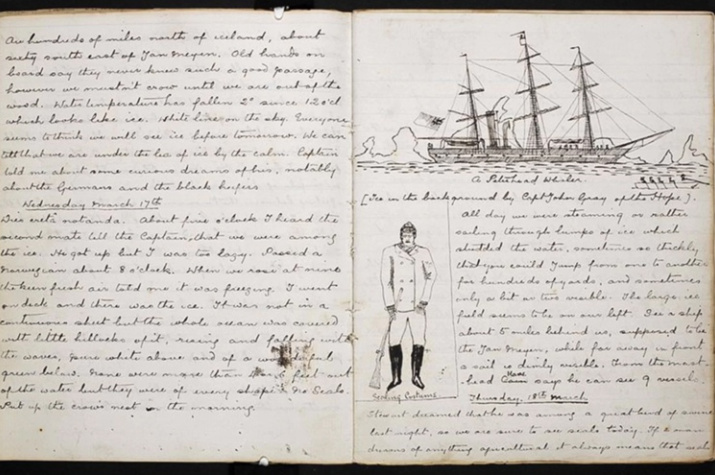 two hundreds of miles north of Iceland, about
sixty south east of Jan Meyen. Old hands on
board say they never knew such a good passage,
however we mustn't crow until we are out of the
wood. Water temperature has fallen 2° since 12 o'cl
which looks like ice. White line on the sky. Everyone
seems to think we will see ice before tomorrow. We can
tell that we are under the lea of ice by the calm. Captain
told me about some curious dreams of his, notably
about the Germans and the black heifers.
Wednesday March 17th
Dies creta notanda. About five o'clock I heard the
second mate tell the Captain, that we were among
the ice. He got up but I was too lazy. Passed a
Norwegian about 8 o'clock. When we rose at nine
the keen fresh air told me it was freezing. I went
on deck and there was the ice. It was not in a
continuous sheet but the whole ocean was covered
with little hillocks of it, rising and falling with
the waves, pure white above and of a wonderful
green below. None were more than feet out
of the water but they were of every shape. No Seals.
Put up the crows nest in the morning.
A Peterhead Whaler
[Ice in the background by Capt John Gray of the Hope].
All day we were steaming or rather
sailing through lumps of ice which
studded the water, sometimes so thickly
that you could jump from one to another
for hundreds of yards, and sometimes
only a bit or two visible. The large ice
field seems to be on our left. See a ship
about 5 miles behind us, supposed to be
the Jan Meyen, while far away in front
a sail is dimly visible. From the mast
head says he can see 9 vessels.
Sealing Costume
Thursday, 18th March
dreamed that he was among a great herd of swine
last night, so we are sure to see seals today. If a man
dreams of anything agricultural it always means that seals